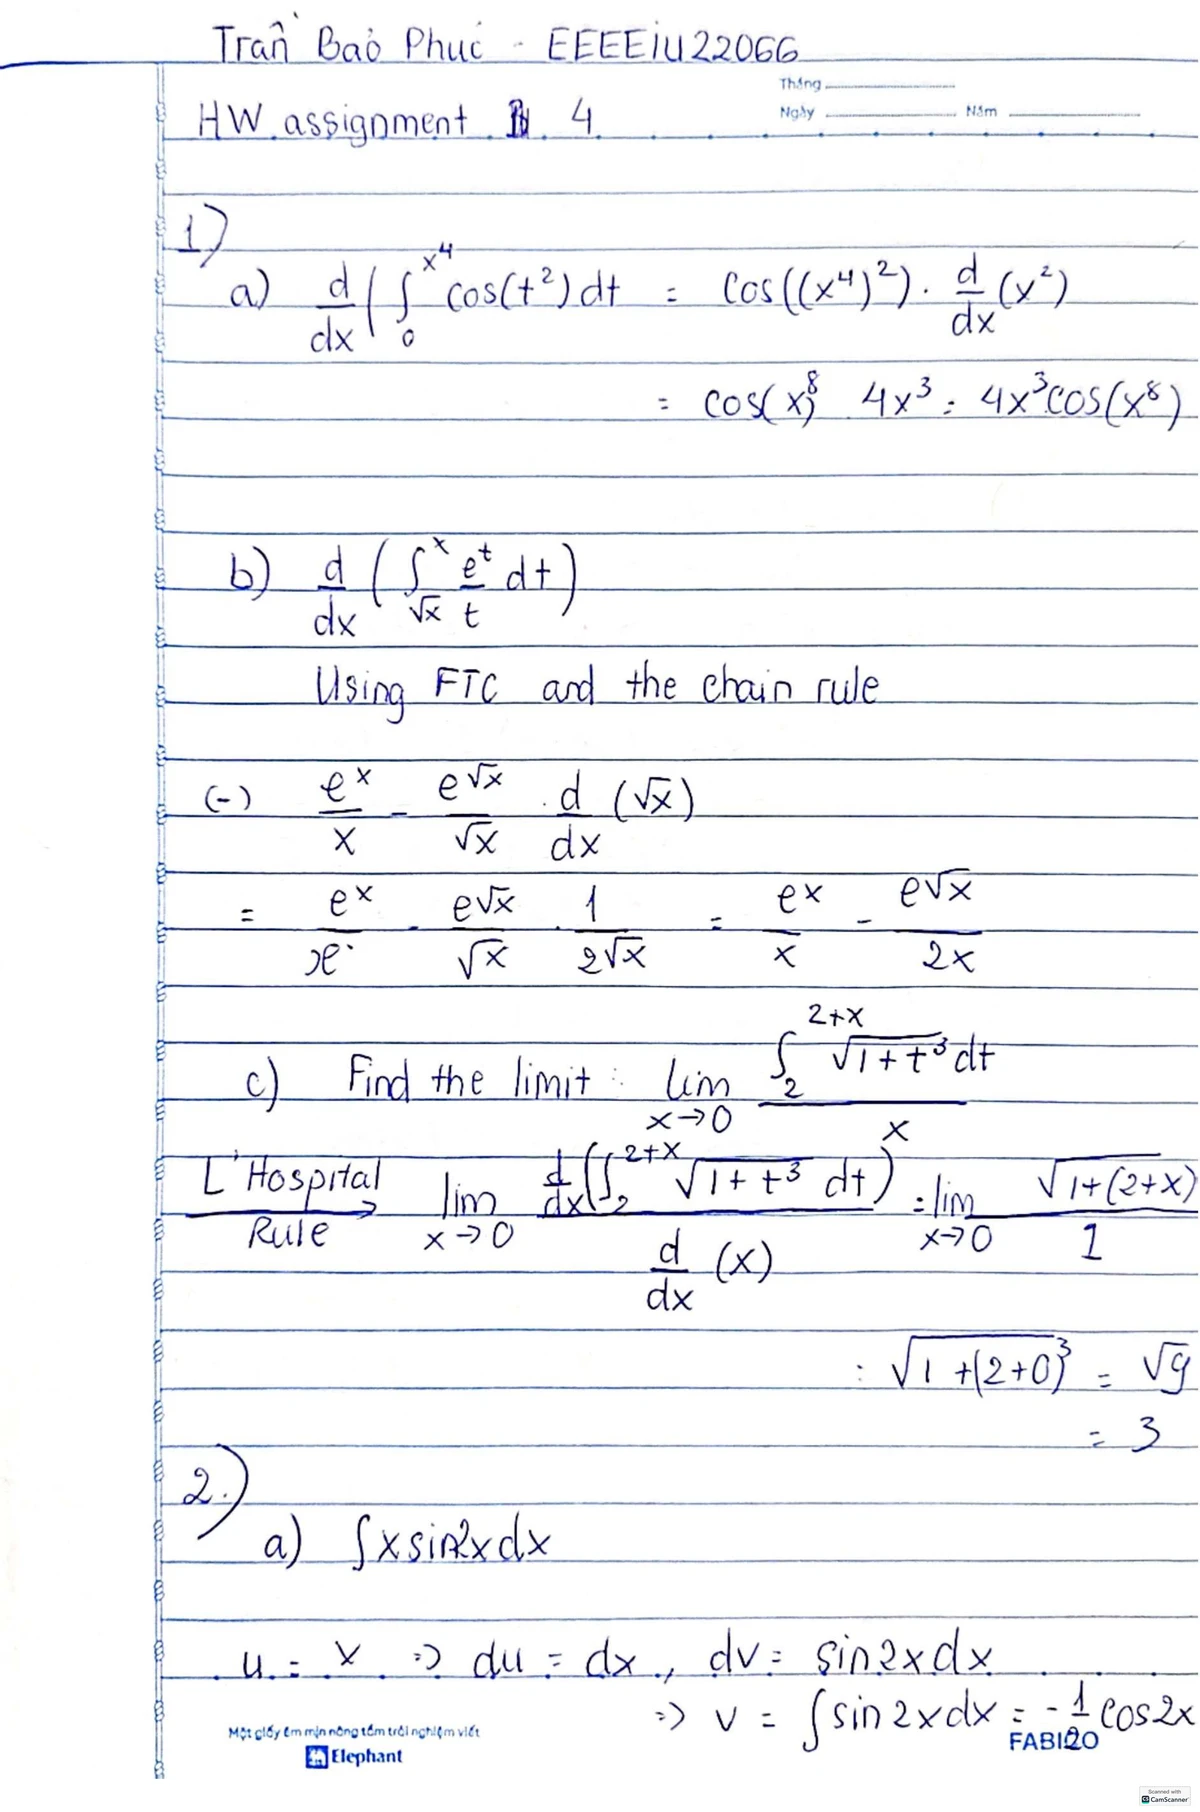 Trần Bảo Phúc - EEEEIU22066
Tháng
HW assignment 4
Ngày Năm
1)
a) d/dx ( ∫₀^x⁴ cos(t²) dt = cos((x⁴)²) . d/dx (x²)
= cos(x)⁸ 4x³ = 4x³cos(x⁸)
b) d/dx ( ∫_√x^x e^t/t dt )
Using FTC and the chain rule
(-) e^x/x - e^√x/√x . d/dx (√x)
= e^x/x - e^√x/√x . 1/2√x = e^x/x - e^√x/2x
c) Find the limit : lim x→0 ∫₂^2+x √1+t³ dt / x
L'Hospital Rule → lim x→0 d/dx ( ∫₂^2+x √1+t³ dt ) / d/dx (x) = lim x→0 √1+(2+x) / 1
: √1+(2+0)³ = √9
= 3
2.)
a) ∫x sin2x dx
u = x => du = dx , dv = sin2x dx
=> v = ∫ sin2x dx = -1/2 cos2x
Một giấy êm mịn nâng tầm trải nghiệm viết
Elephant
Scanned with
CamScanner